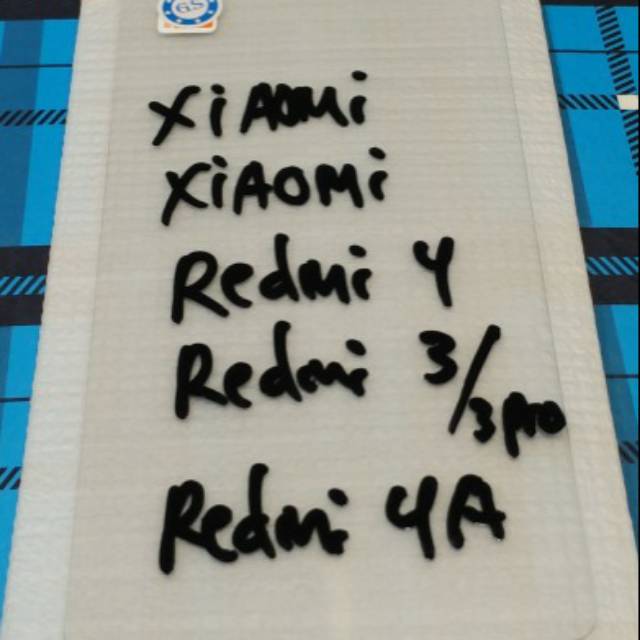 GS
XiAOMi
XiAOMi
Redmi 4
Redmi 3/3pro
Redmi 4A